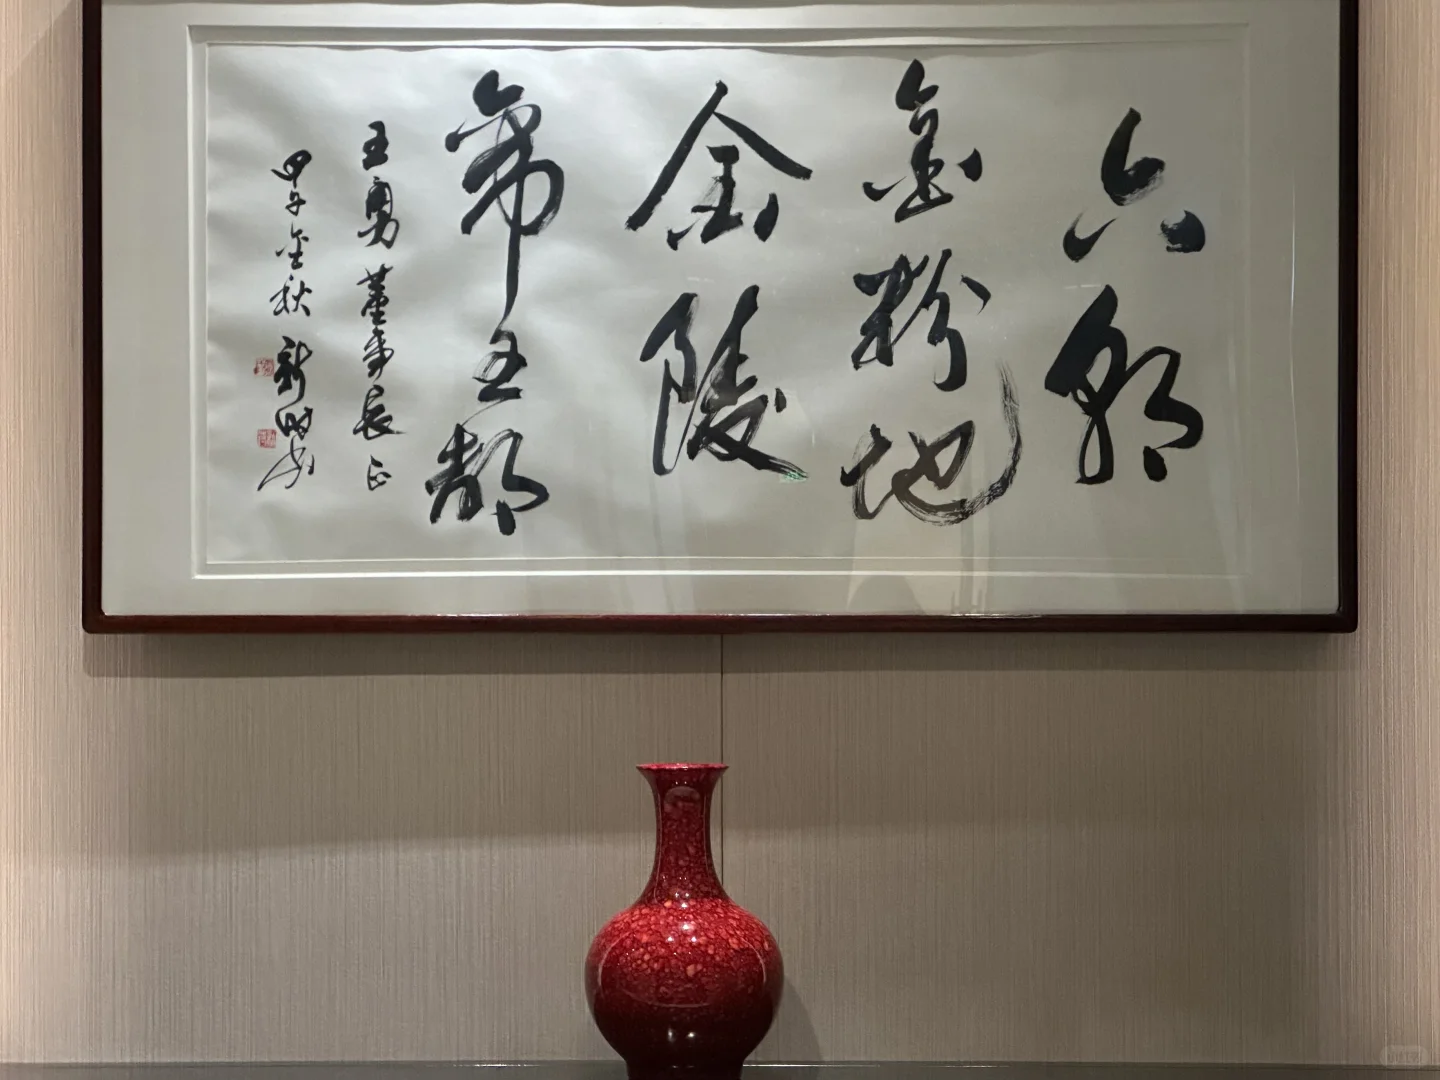 六朝
金粉地
金陵
帝王都
王勇董事長正
甲午金秋